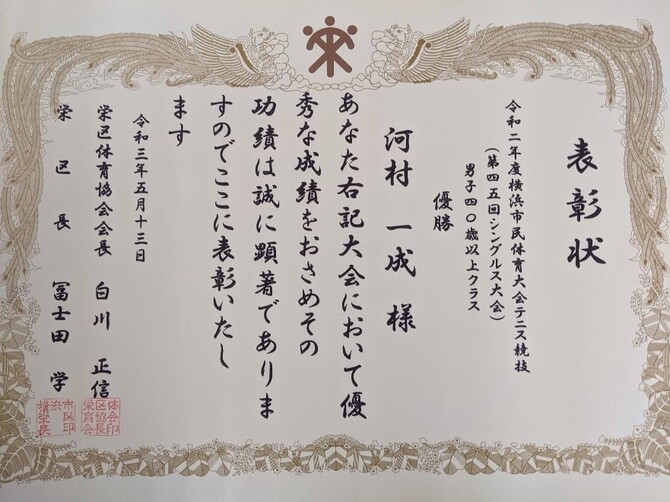 表彰状
令和二年度横浜市民体育大会テニス競技
(第四五回シングルス大会)
男子四〇歳以上クラス
優勝
河村 一成 様
あなた右記大会において優
秀な成績をおさめその
功績は誠に顕著でありま
すのでここに表彰いたし
ます
令和三年五月十三日
栄区体育協会会長 白川 正信
栄区長 冨士田 学